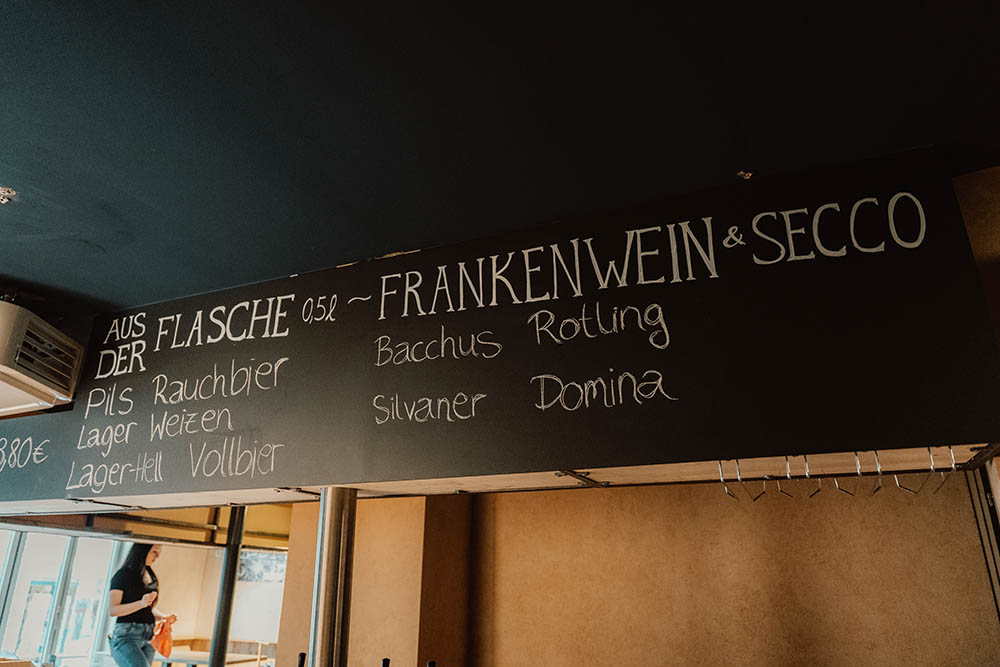 AUS DER FLASCHE 0,5l ~ FRANKENWEIN & SECCO
Pils Rauchbier
Lager Weizen
Lager-Hell Vollbier
Bacchus Rotling
Silvaner Domina
,80€